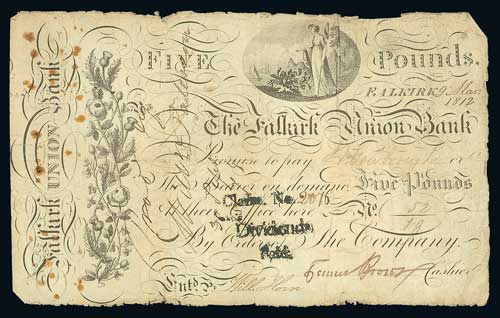 FIVE Pounds.
FALKIRK 9 Mar.
1812
The Falkirk Union Bank
Promise to pay or
The Bearer on demand Five Pounds
at their Office here
No.
By Order of The Company.
Entd. Willm. Horn
James Brown Cashier
Falkirk UNION Bank
Claim No. 2076
Dividends
Paid.